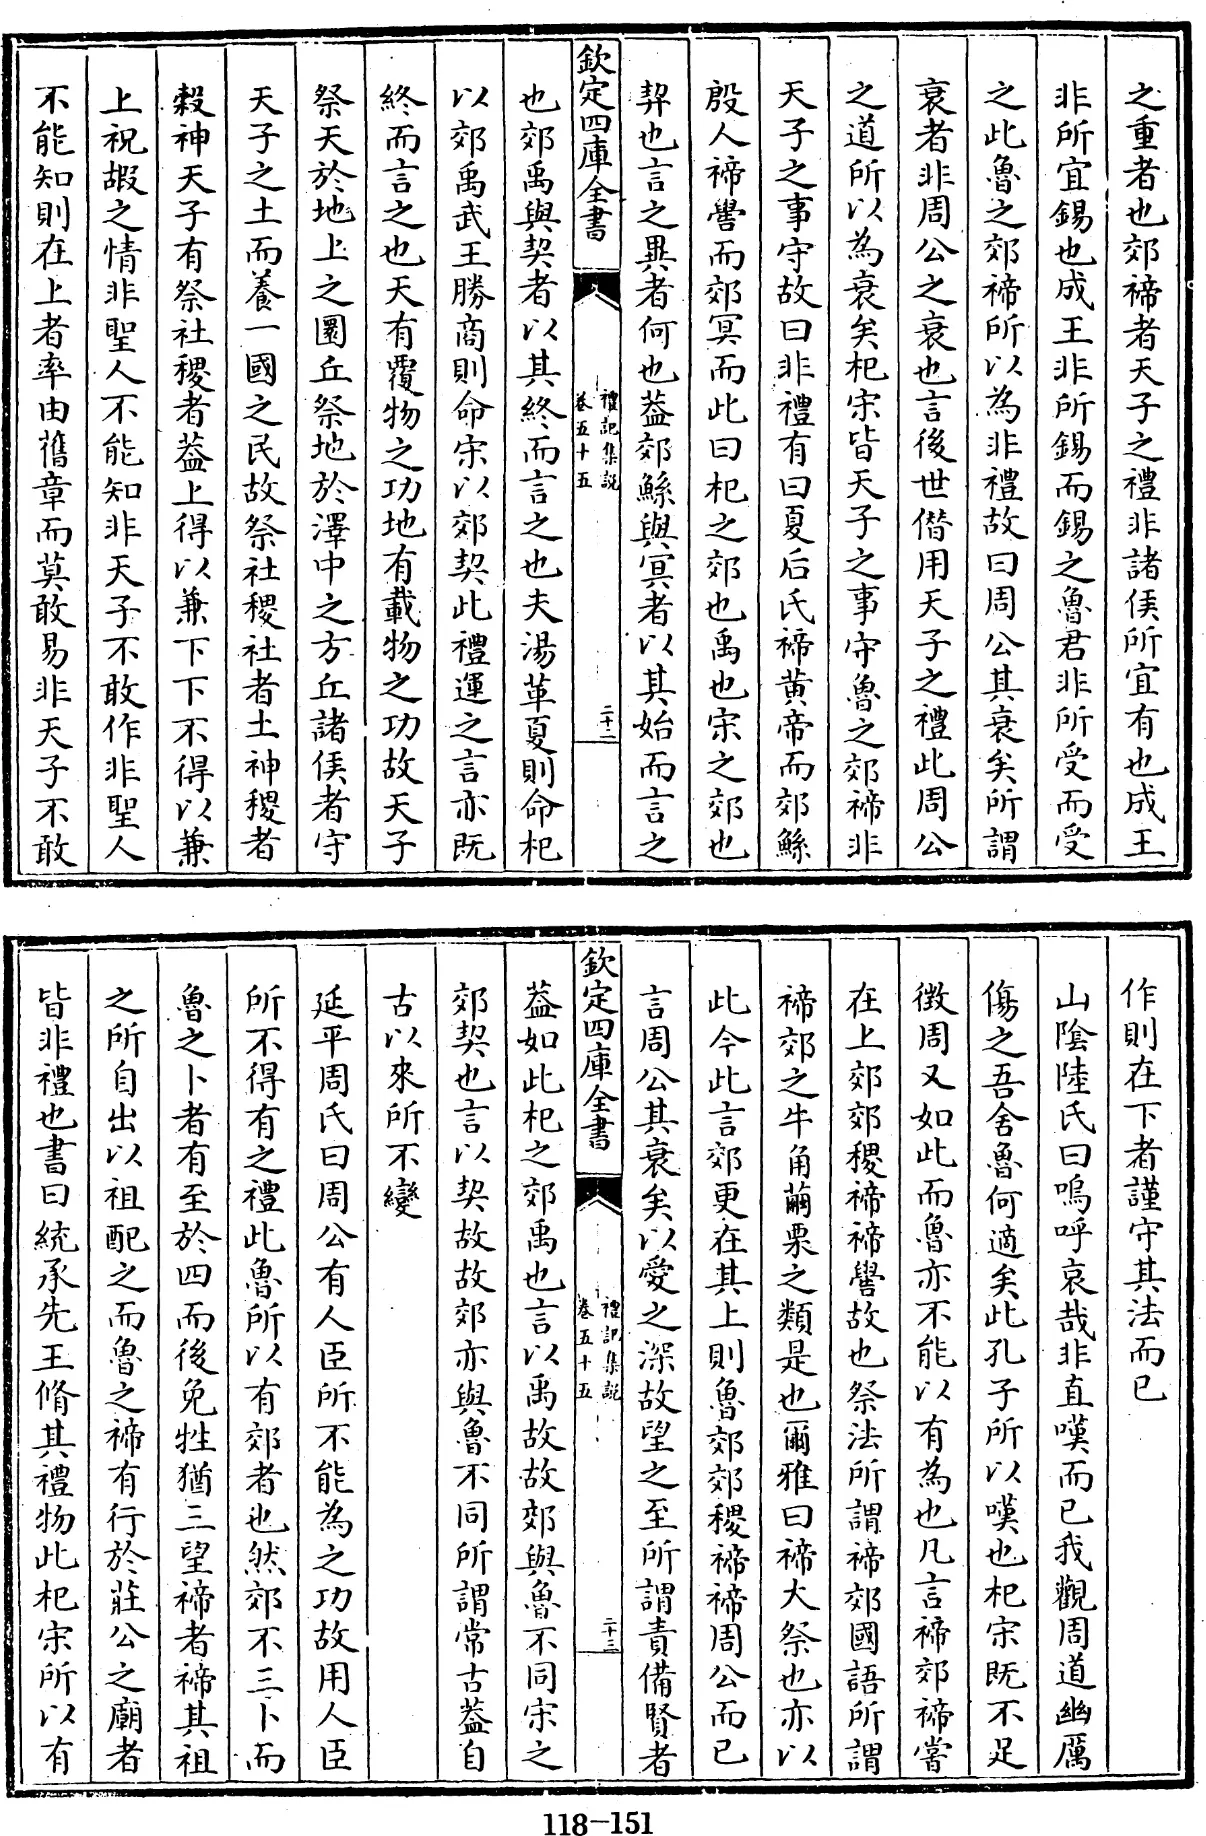 之重者也郊禘者天子之禮非諸侯所宜有也成王
非所宜錫也成王非所錫而錫之魯君非所受而受
之此魯之郊禘所以為非禮故曰周公其衰矣所謂
衰者非周公之衰也言後世僭用天子之禮此周公
之道所以為衰矣杞宋皆天子之事守魯之郊禘非
天子之事守故曰非禮有曰夏后氏禘黄帝而郊鯀
殷人禘嚳而郊冥而此曰杞之郊也禹也宋之郊也
契也言之異者何也葢郊鯀與冥者以其始而言之
欽定四庫全書
禮記集說
卷五十五
二十二
也郊禹與契者以其終而言之也夫湯革夏則命杞
以郊禹武王勝商則命宋以郊契此禮運之言亦既
終而言之也天有覆物之功地有載物之功故天子
祭天於地上之圜丘祭地於澤中之方丘諸侯者守
天子之土而養一國之民故祭社稷社者土神稷者
穀神天子有祭社稷者葢上得以兼下下不得以兼
上祝嘏之情非聖人不能知非天子不敢作非聖人
不能知則在上者率由舊章而莫敢易非天子不敢
作則在下者謹守其法而已
山陰陸氏曰嗚呼哀哉非直嘆而已我觀周道幽厲
傷之吾舍魯何適矣此孔子所以嘆也杞宋既不足
徴周又如此而魯亦不能以有為也凡言禘郊禘嘗
在上郊郊稷禘禘嚳故也祭法所謂禘郊國語所謂
禘郊之牛角繭栗之類是也爾雅曰禘大祭也亦以
此今此言郊更在其上則魯郊郊稷禘禘周公而已
言周公其衰矣以愛之深故望之至所謂責備賢者
欽定四庫全書
禮記集說
卷五十五
二十三
葢如此杞之郊禹也言以禹故故郊與魯不同宋之
郊契也言以契故故郊亦與魯不同所謂常古葢自
古以來所不變
延平周氏曰周公有人臣所不能為之功故用人臣
所不得有之禮此魯所以有郊者也然郊不三卜而
魯之卜者有至於四而後免牲猶三望禘者禘其祖
之所自出以祖配之而魯之禘有行於莊公之廟者
皆非禮也書曰統承先王脩其禮物此杞宋所以有
118-151